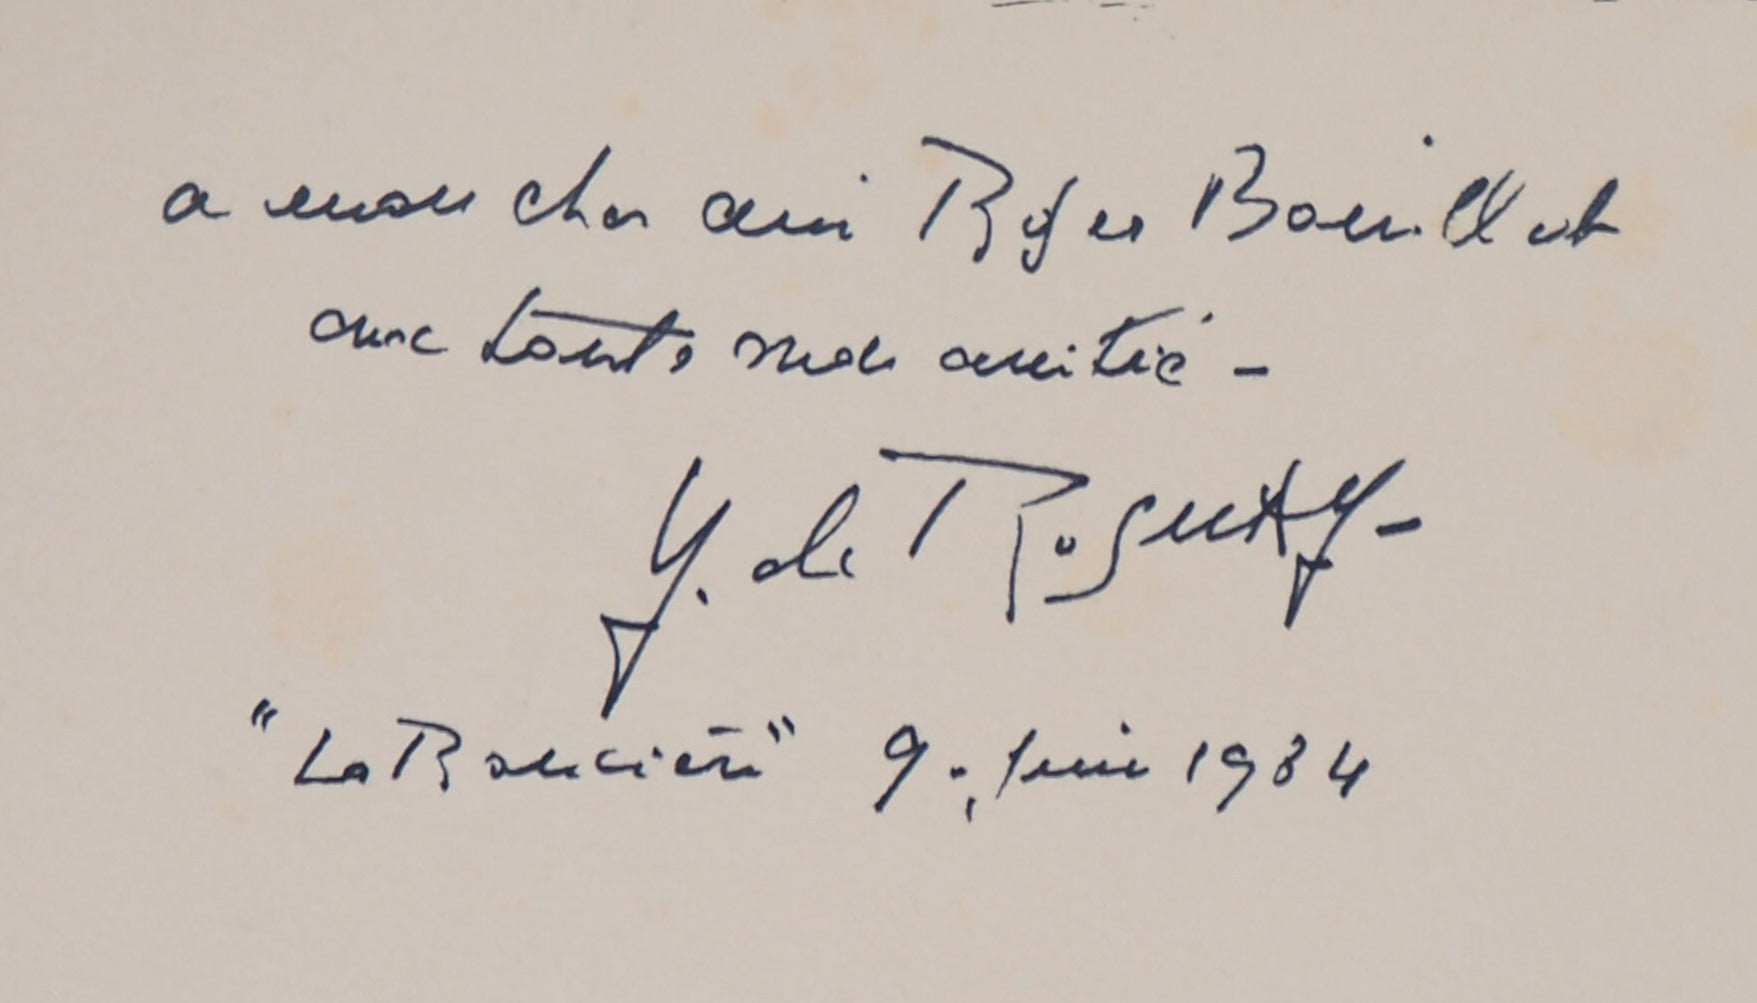 a mon cher ami Roger Bouillot
avec toute mon amitié -
G. de Rosnay -
"La Roncière" 9. Juin 1984